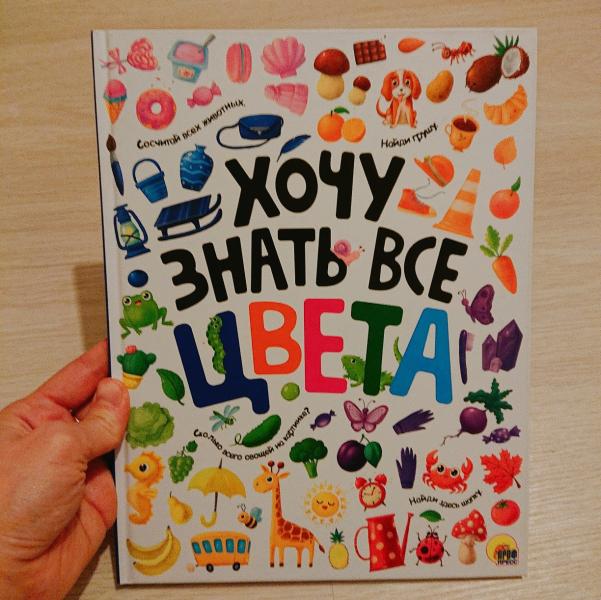 Сосчитай всех животных.
Найди грушу.
ХОЧУ
ЗНАТЬ ВСЕ
ЦВЕТА
Сколько всего овощей на картинке?
Найди здесь шапку.
ПРОФ
ПРЕСС